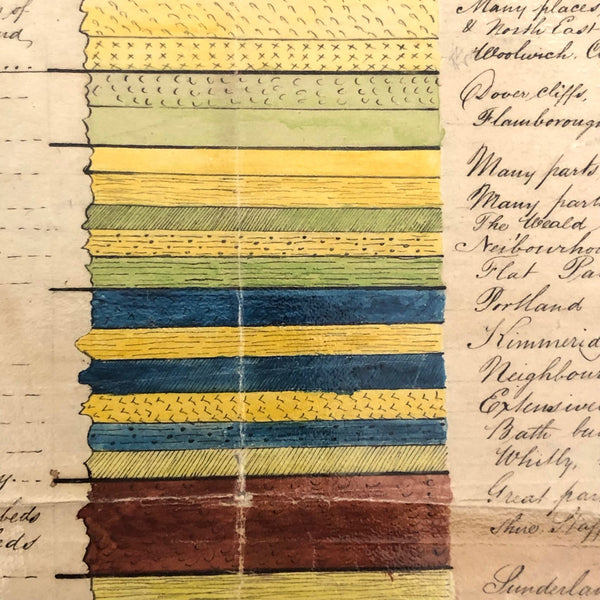 s of
nd,
Many places
& North East
Woolwich. C
Dover cliffs,
Flamboroug
Many parts
Many part
The Weald
Neibourhoo
Flat Pa
Portland
Kimmerid
Neighbour
Extensive
Bath bu
Whitby,
Great par
Shire. Staff
y
beds
eds
Sunderlan